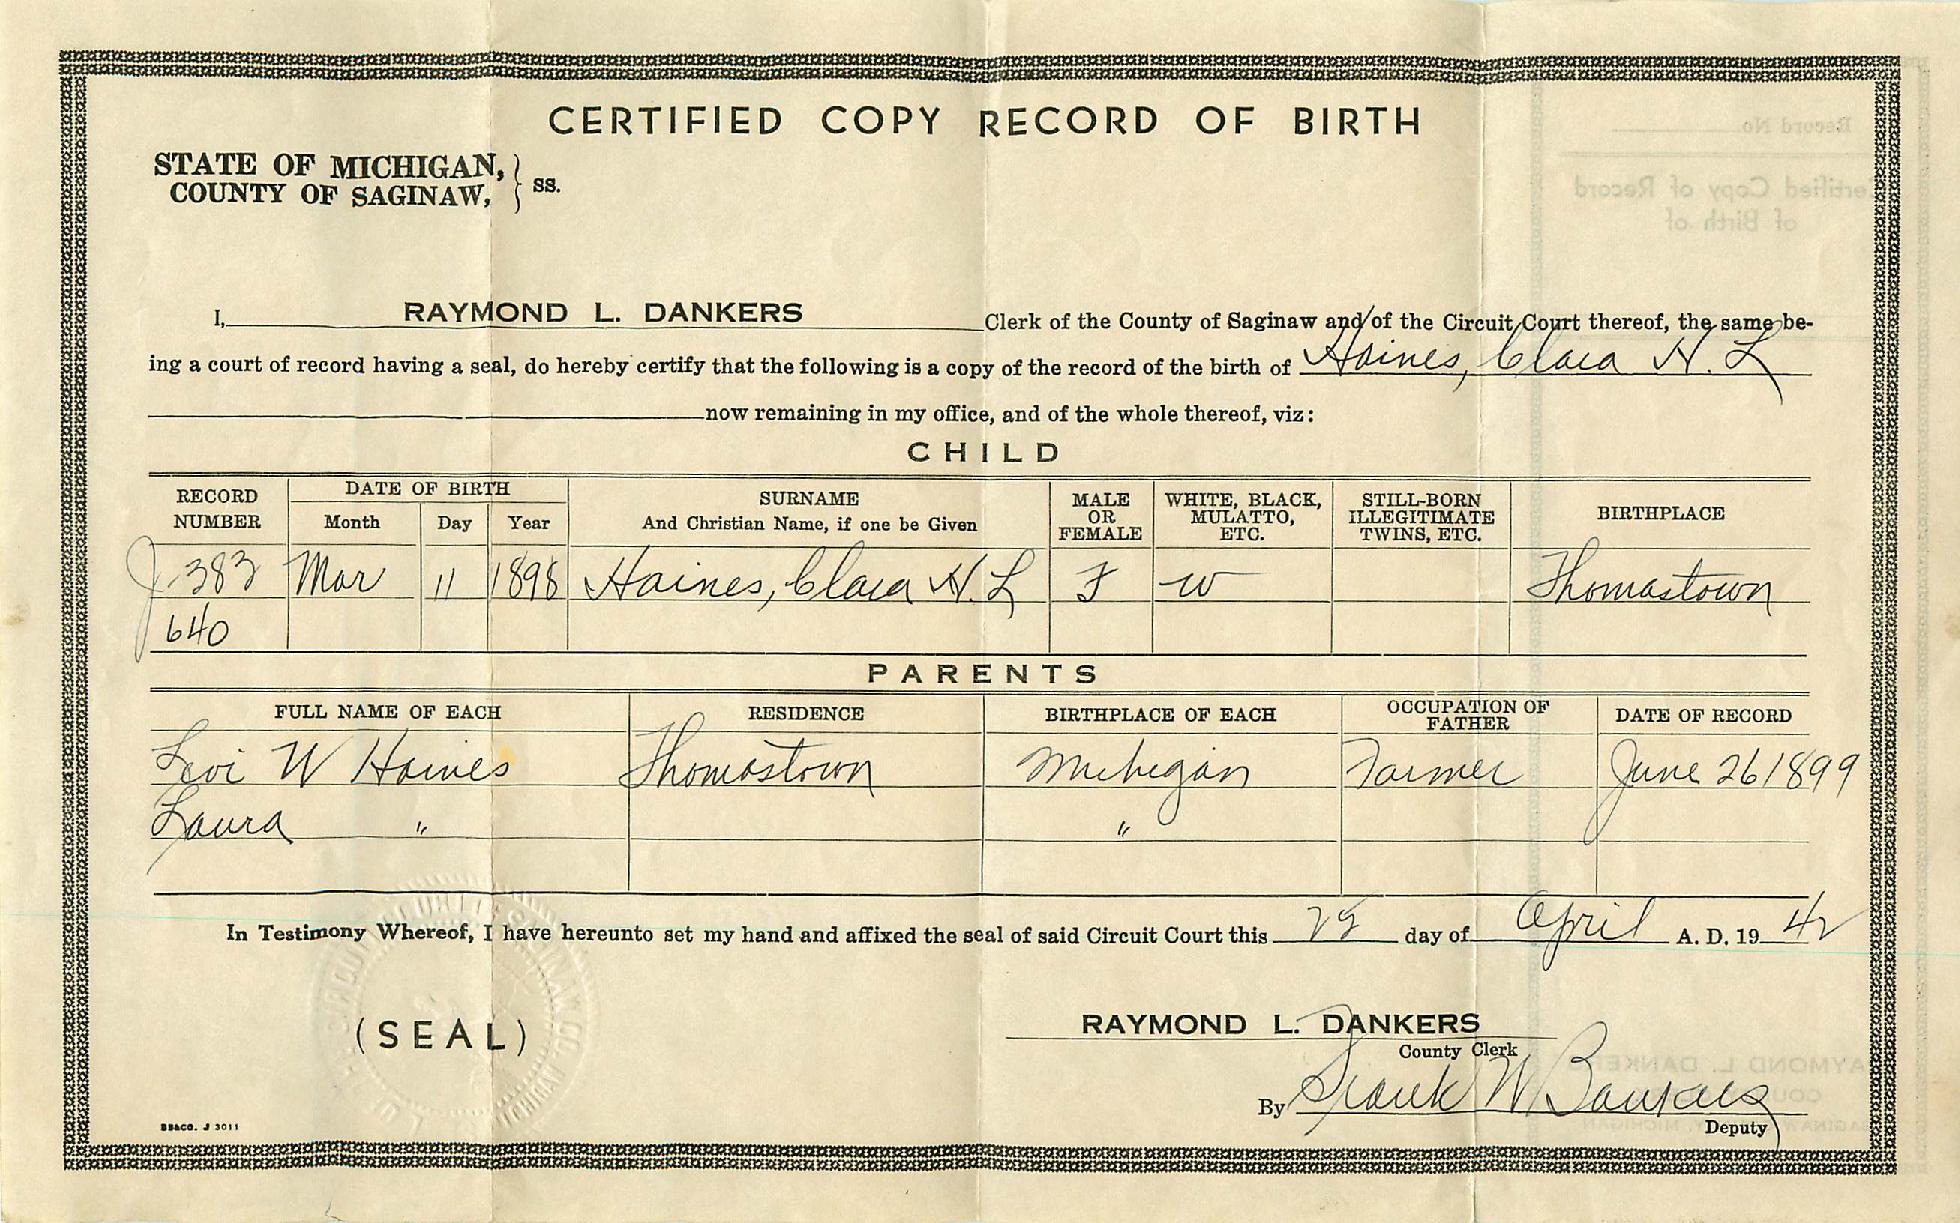 CERTIFIED COPY RECORD OF BIRTH
STATE OF MICHIGAN,
COUNTY OF SAGINAW, } ss.
Record No.
Certified Copy of Record
of Birth of
I, RAYMOND L. DANKERS Clerk of the County of Saginaw and/of the Circuit Court thereof, the same be-
ing a court of record having a seal, do hereby certify that the following is a copy of the record of the birth of Haines, Clara H. L
now remaining in my office, and of the whole thereof, viz:
CHILD
RECORD NUMBER
DATE OF BIRTH
Month Day Year
SURNAME
And Christian Name, if one be Given
MALE OR FEMALE
WHITE, BLACK, MULATTO, ETC.
STILL-BORN ILLEGITIMATE TWINS, ETC.
BIRTHPLACE
J-383 Mar 11 1898 Haines, Clara H. L F W Thomastown
640
PARENTS
FULL NAME OF EACH RESIDENCE BIRTHPLACE OF EACH OCCUPATION OF FATHER DATE OF RECORD
Levi W Haines Thomastown Michigan Farmer June 26 1899
Laura " "
In Testimony Whereof, I have hereunto set my hand and affixed the seal of said Circuit Court this day of April A. D. 19 42
(SEAL)
RAYMOND L. DANKERS
County Clerk
By Frank W
Deputy
RAYMOND L. DANKERS
SS&CO. J 3011